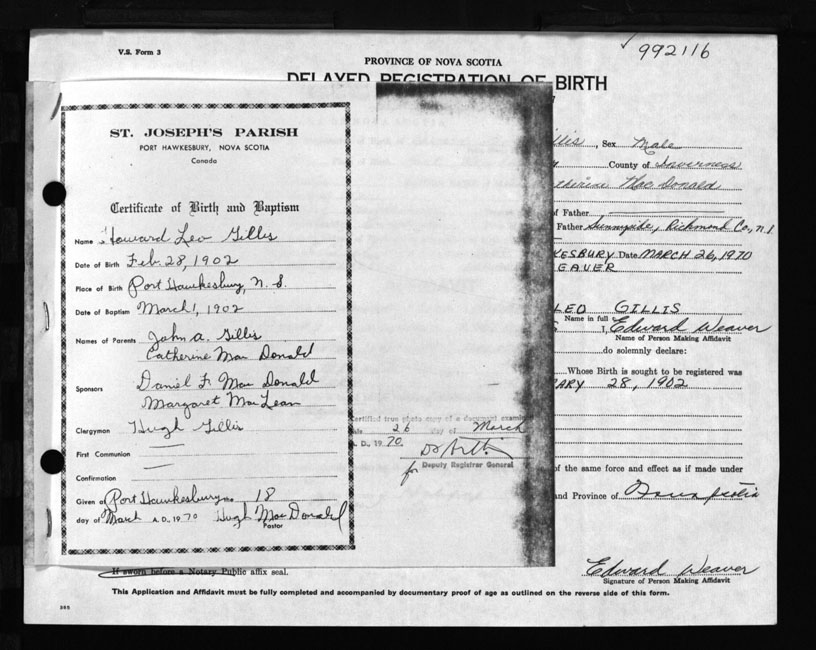 V.S. Form 3
992116
PROVINCE OF NOVA SCOTIA
DELAYED REGISTRATION OF BIRTH
ST. JOSEPH'S PARISH
PORT HAWKESBURY, NOVA SCOTIA
Canada
Certificate of Birth and Baptism
Name Howard Leo Gillis
Date of Birth Feb. 28, 1902
Place of Birth Port Hawkesbury, N. S.
Date of Baptism March 1, 1902
Names of Parents John A. Gillis
Catherine Mac Donald
Sponsors Daniel F. Mac Donald
Margaret MacLean
Clergyman Hugh Gillis
First Communion —
Confirmation —
Given at Port Hawkesbury 18
day of March A.D. 1970 Hugh MacDonald
Pastor
Certified true photo copy of a document
26 day of March
A. D., 1970
for Deputy Registrar General
llis, Sex Male
County of Inverness
therine Mac Donald
of Father
Father Sunnyside, Richmond Co., N.S.
KESBURY Date MARCH 26, 1970
EAVER
LEO GILLIS
Name in full
I, Edward Weaver
Name of Person Making Affidavit
do solemnly declare:
Whose Birth is sought to be registered was
ARY 28, 1902
of the same force and effect as if made under
and Province of Nova Scotia
Edward Weaver
Signature of Person Making Affidavit
If sworn before a Notary Public affix seal.
This Application and Affidavit must be fully completed and accompanied by documentary proof of age as outlined on the reverse side of this form.